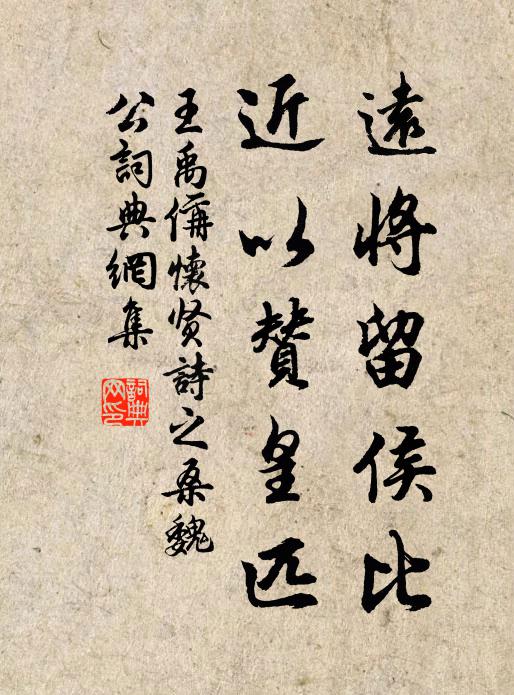 遠將留侯比
近以贊皇匹
王禹偁懷賢詩之桑魏
公詞典網集
詞典
网印